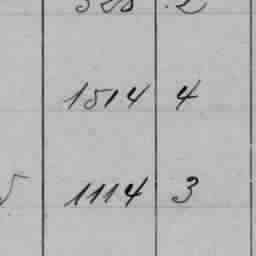 328 2
1514 4
5 1114 3